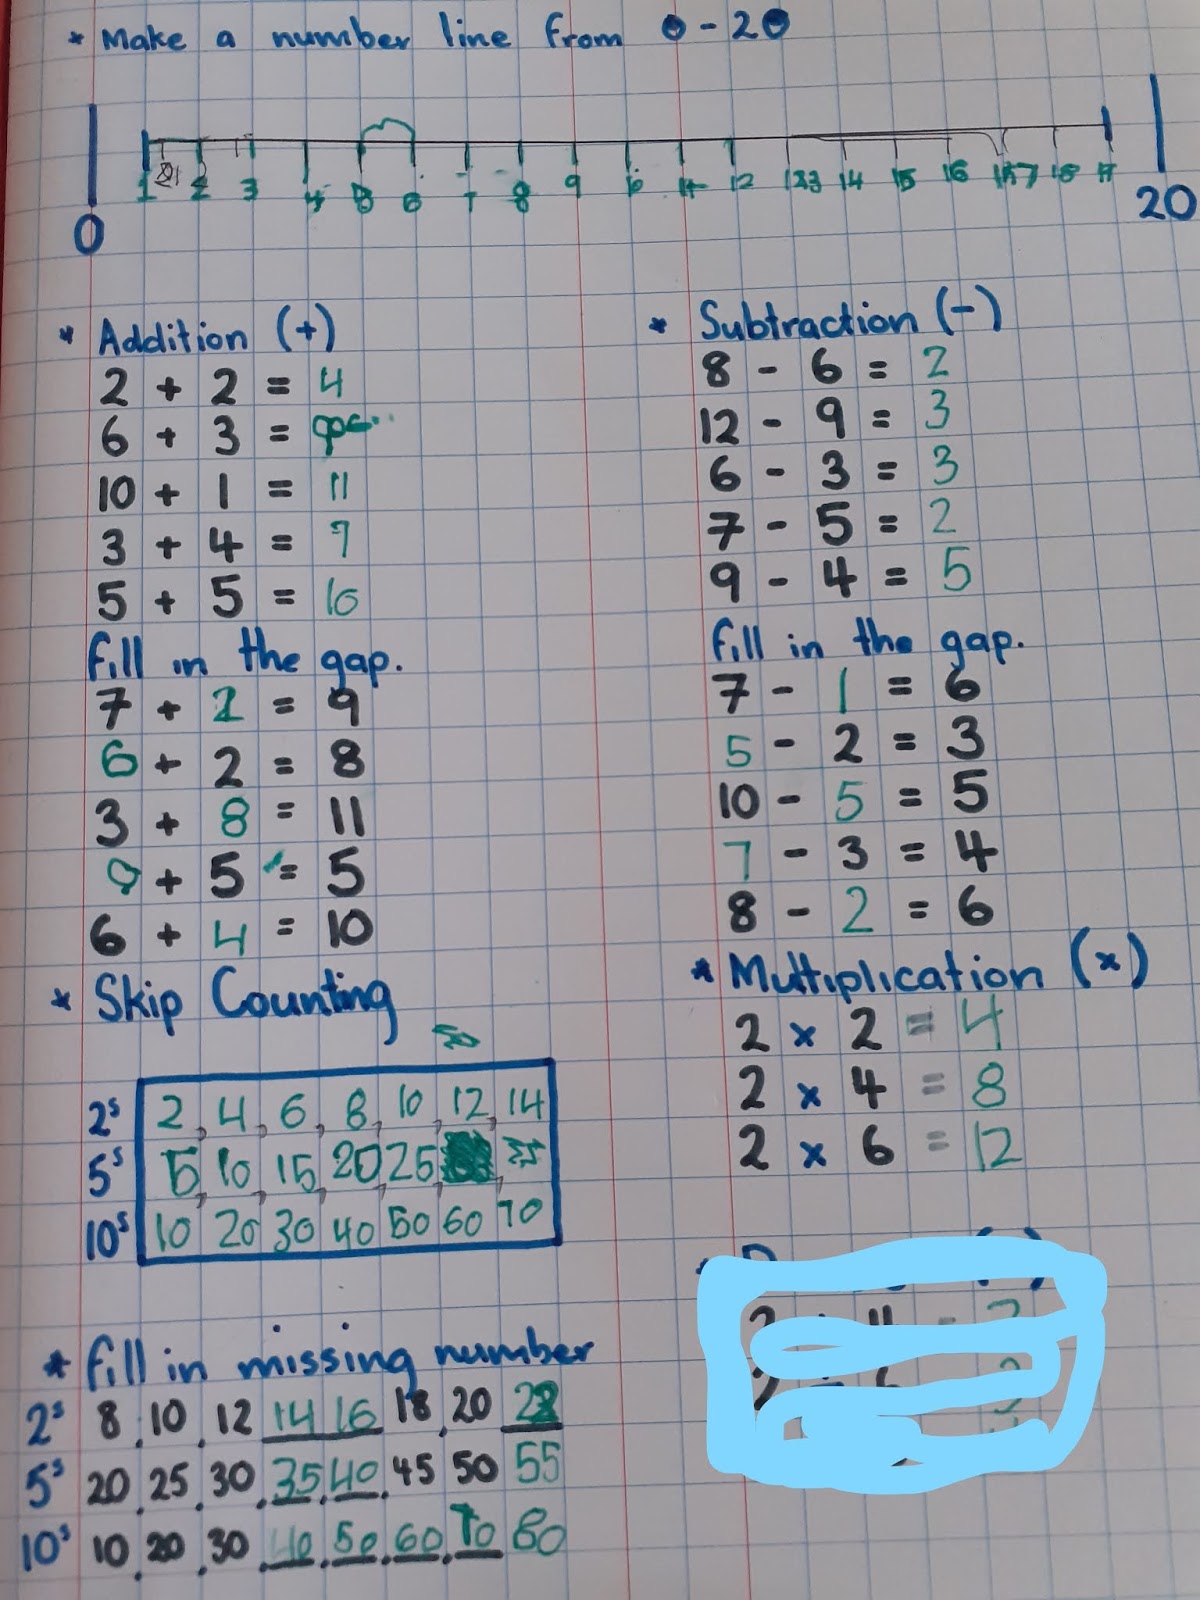 * Make a number line from 0 - 20
1 2 3 4 5 6 7 8 9 10 11 12 13 14 15 16 17 18
0 20
* Addition (+)
2 + 2 = 4
6 + 3 =
10 + 1 = 11
3 + 4 = 7
5 + 5 = 10
fill in the gap.
7 + 2 = 9
6 + 2 = 8
3 + 8 = 11
0 + 5 = 5
6 + 4 = 10
* Skip Counting
2s 2, 4, 6, 8, 10, 12, 14
5s 5, 10, 15, 20, 25, 35
10s 10 20 30 40 50 60 70
* fill in missing number
2s 8, 10, 12 14 16 18, 20 22
5s 20, 25, 30, 35, 40, 45 50 55
10s 10, 20, 30, 40, 50, 60, 70 80
* Subtraction (-)
8 - 6 = 2
12 - 9 = 3
6 - 3 = 3
7 - 5 = 2
9 - 4 = 5
fill in the gap.
7 - 1 = 6
5 - 2 = 3
10 - 5 = 5
7 - 3 = 4
8 - 2 = 6
* Multiplication (x)
2 x 2 = 4
2 x 4 = 8
2 x 6 = 12